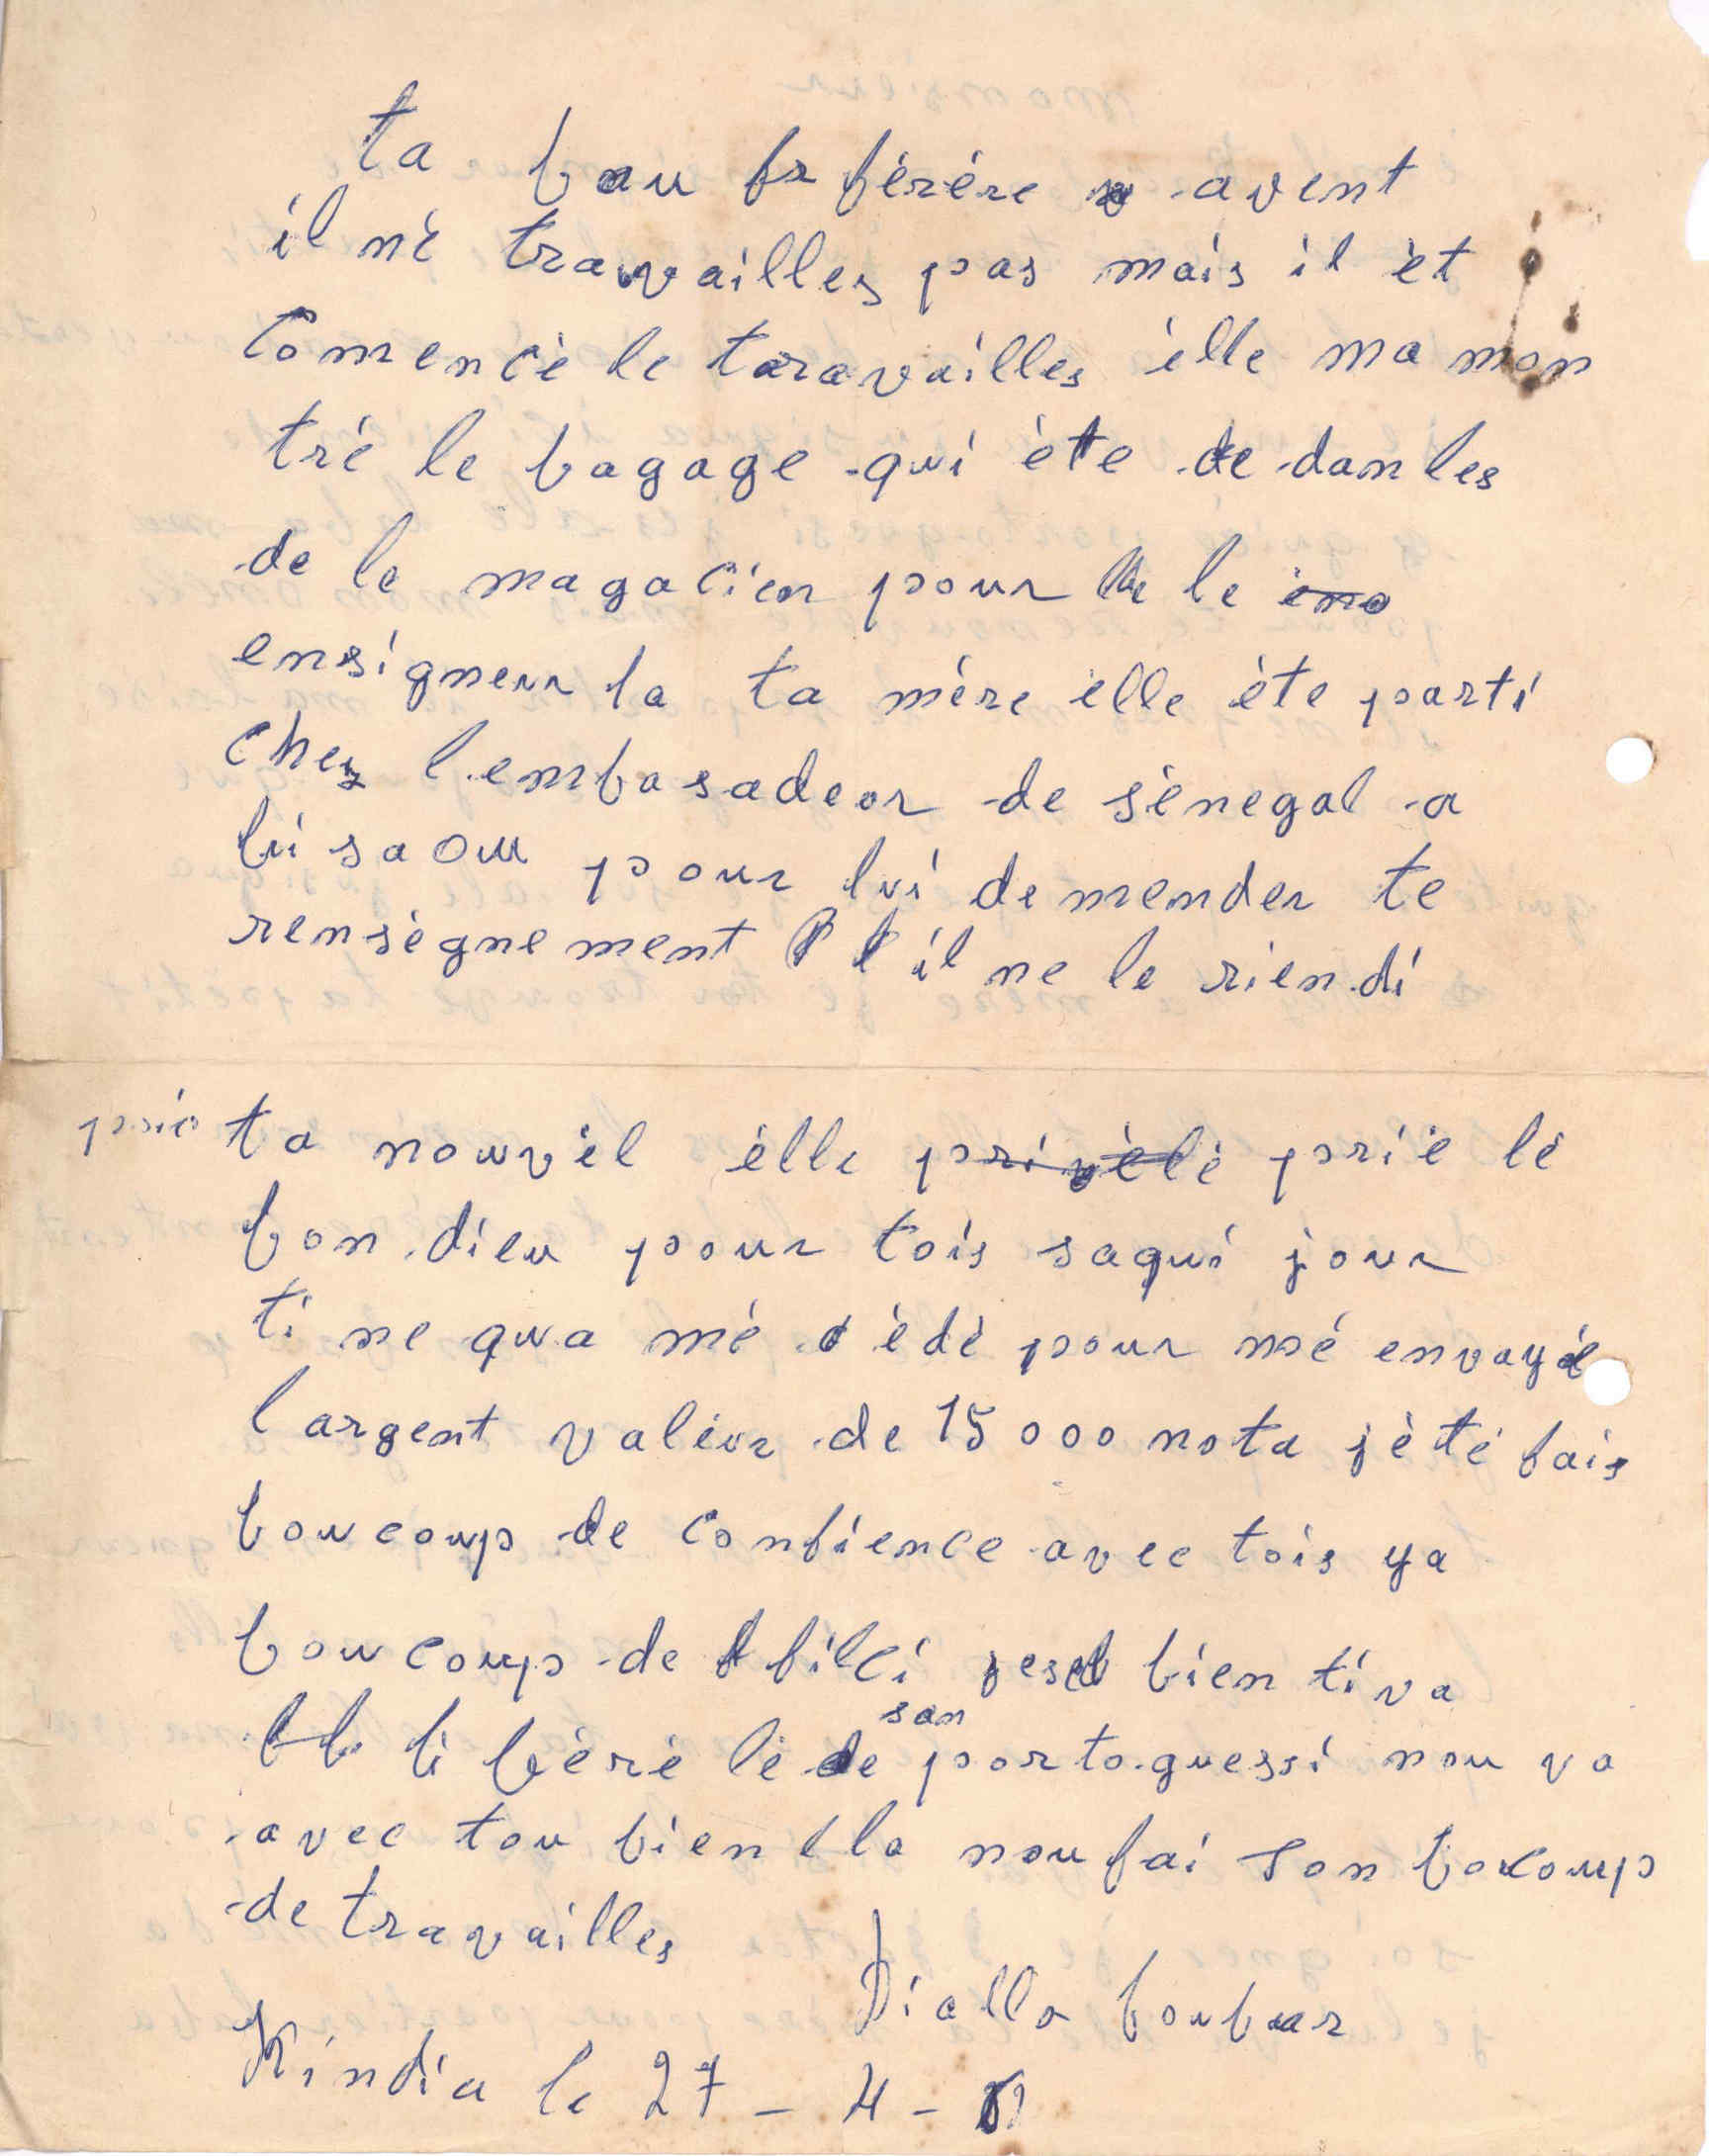 ta bau fr férére avent
il né travailles pas mais il èt
Comencè le taravailles élle ma mon
tré le bagage qui ète de dan les
de le magacien pour le le
ensigneur la ta mère élle éte parti
chez l'embasadeor de sènegal a
bisaou pour lui demender te
rensègnement il ne le rien di
ta nouvèl élle privèlé prié lé
bon dieu pour tois saqui jour
ti ne qua mé édé pour mé envoyé
largent valéur de 15000 nota jèté fais
boucoup de confience avec tois ya
boucoup de filci bien ti va
li béré lé de son portoguessi nou va
avec tou bien la nou fai son bocoup
de travailles
Diallo boubar
Kindia le 27 - 4 -